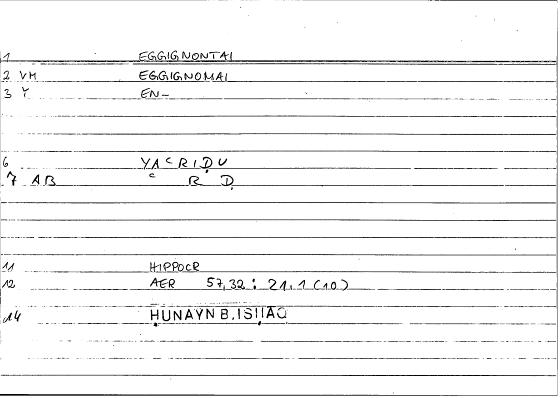 1 EGGIGNONTAI
2 VM EGGIGNOMAI
3 Y EN-
6 YAʿRIḌU
7 AB ʿ R Ḍ
11 HIPPOCR
12 AER 57,32 : 21,1 (10)
14 ḤUNAYN B.ISḤAQ